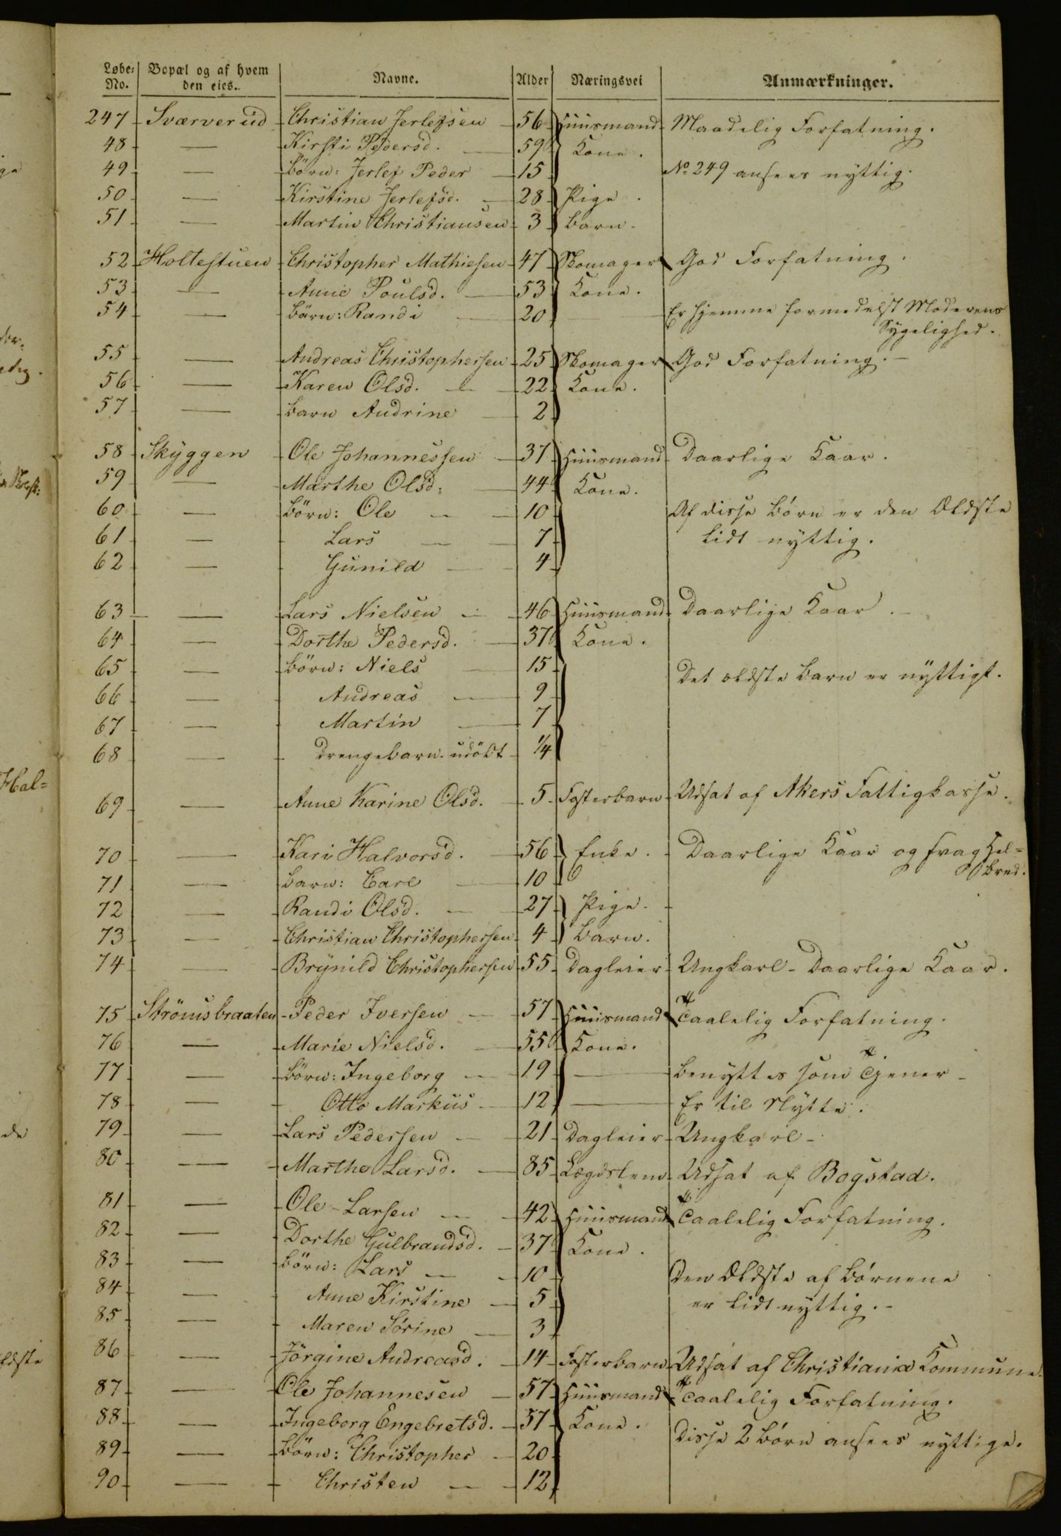 Løbe- No. Bopæl og af hvem den eies. Navne. Alder Næringsvei Anmærkninger.
247 Sværverud Christian Jerlefsen 56 Huusmand Maadelig Forfatning.
48 — Kirsti Pedersd. 59 Kone.
49 — Börn: Jerlef Peder 15 No 249 ansees nyttig.
50 — Kirstine Jerlefsd. 28 Pige.
51 — Martin Christiansen 3 Barn.
52 Holtestuen Christopher Mathiesen 47 Skomager God Forfatning.
53 — Anne Poulsd. 53 Kone.
54 — Börn: Randi 20 — Er hjemme formedelst Moderens
Sygelighed.
55 — Andreas Christophersen 25 Skomager God Forfatning.
56 — Karen Olsd. 22 Kone.
57 — Barn Andrine 2
58 Skyggen Ole Johannessen 37 Huusmand Daarlige Kaar.
59 — Marthe Olsd. 44 Kone.
60 — Börn: Ole 10 Af disse Börn er den Ældste
61 — Lars 7 lidt nyttig.
62 — Gunild 4
63 — Lars Nielsen 46 Huusmand Daarlige Kaar.
64 — Dorthe Pedersd. 37 Kone.
65 — Börn: Niels 15 Det ældste Barn er nyttigt.
66 — Andreas 9
67 — Martin 7
68 — Drengebarn udöbt 1/4
69 — Anne Karine Olsd. 5 Fosterbarn Udsat af Akers Fattigkasse.
70 — Kari Halvorsd. 56 Enke. Daarlige Kaar og svag Hel-
bred.
71 — Barn: Carl 10
72 — Randi Olsd. 27 Pige.
73 — Christian Christophersen 4 Barn.
74 — Brynild Christophersen 55 Dagleier Ungkarl - Daarlige Kaar.
75 Strömsbraaten Peder Iversen 57 Huusmand Taalelig Forfatning.
76 — Marie Nielsd. 55 Kone.
77 — Börn: Ingeborg 19 — Benyttes som Tjener
78 — Otto Markus 12 — Er til Nytte.
79 — Lars Pedersen 21 Dagleier Ungkarl
80 — Marthe Larsd. 85 Lægdslem Udsat af Bogstad.
81 — Ole Larsen 42 Huusmand Taalelig Forfatning.
82 — Dorthe Gulbrandsd. 37 Kone.
83 — Börn: Lars 10 Den Ældste af Börnene
84 — Anne Kirstine 5 er lidt nyttig.
85 — Maren Sörine 3
86 — Jörgine Andreasd. 14 Fosterbarn Udsat af Christiania Kommune.
87 — Ole Johannesen 57 Huusmand Taalelig Forfatning.
88 — Ingeborg Engebretsd. 57 Kone.
89 — Börn: Christopher 20 Disse 2 Börn ansees nyttige.
90 — Christen 12